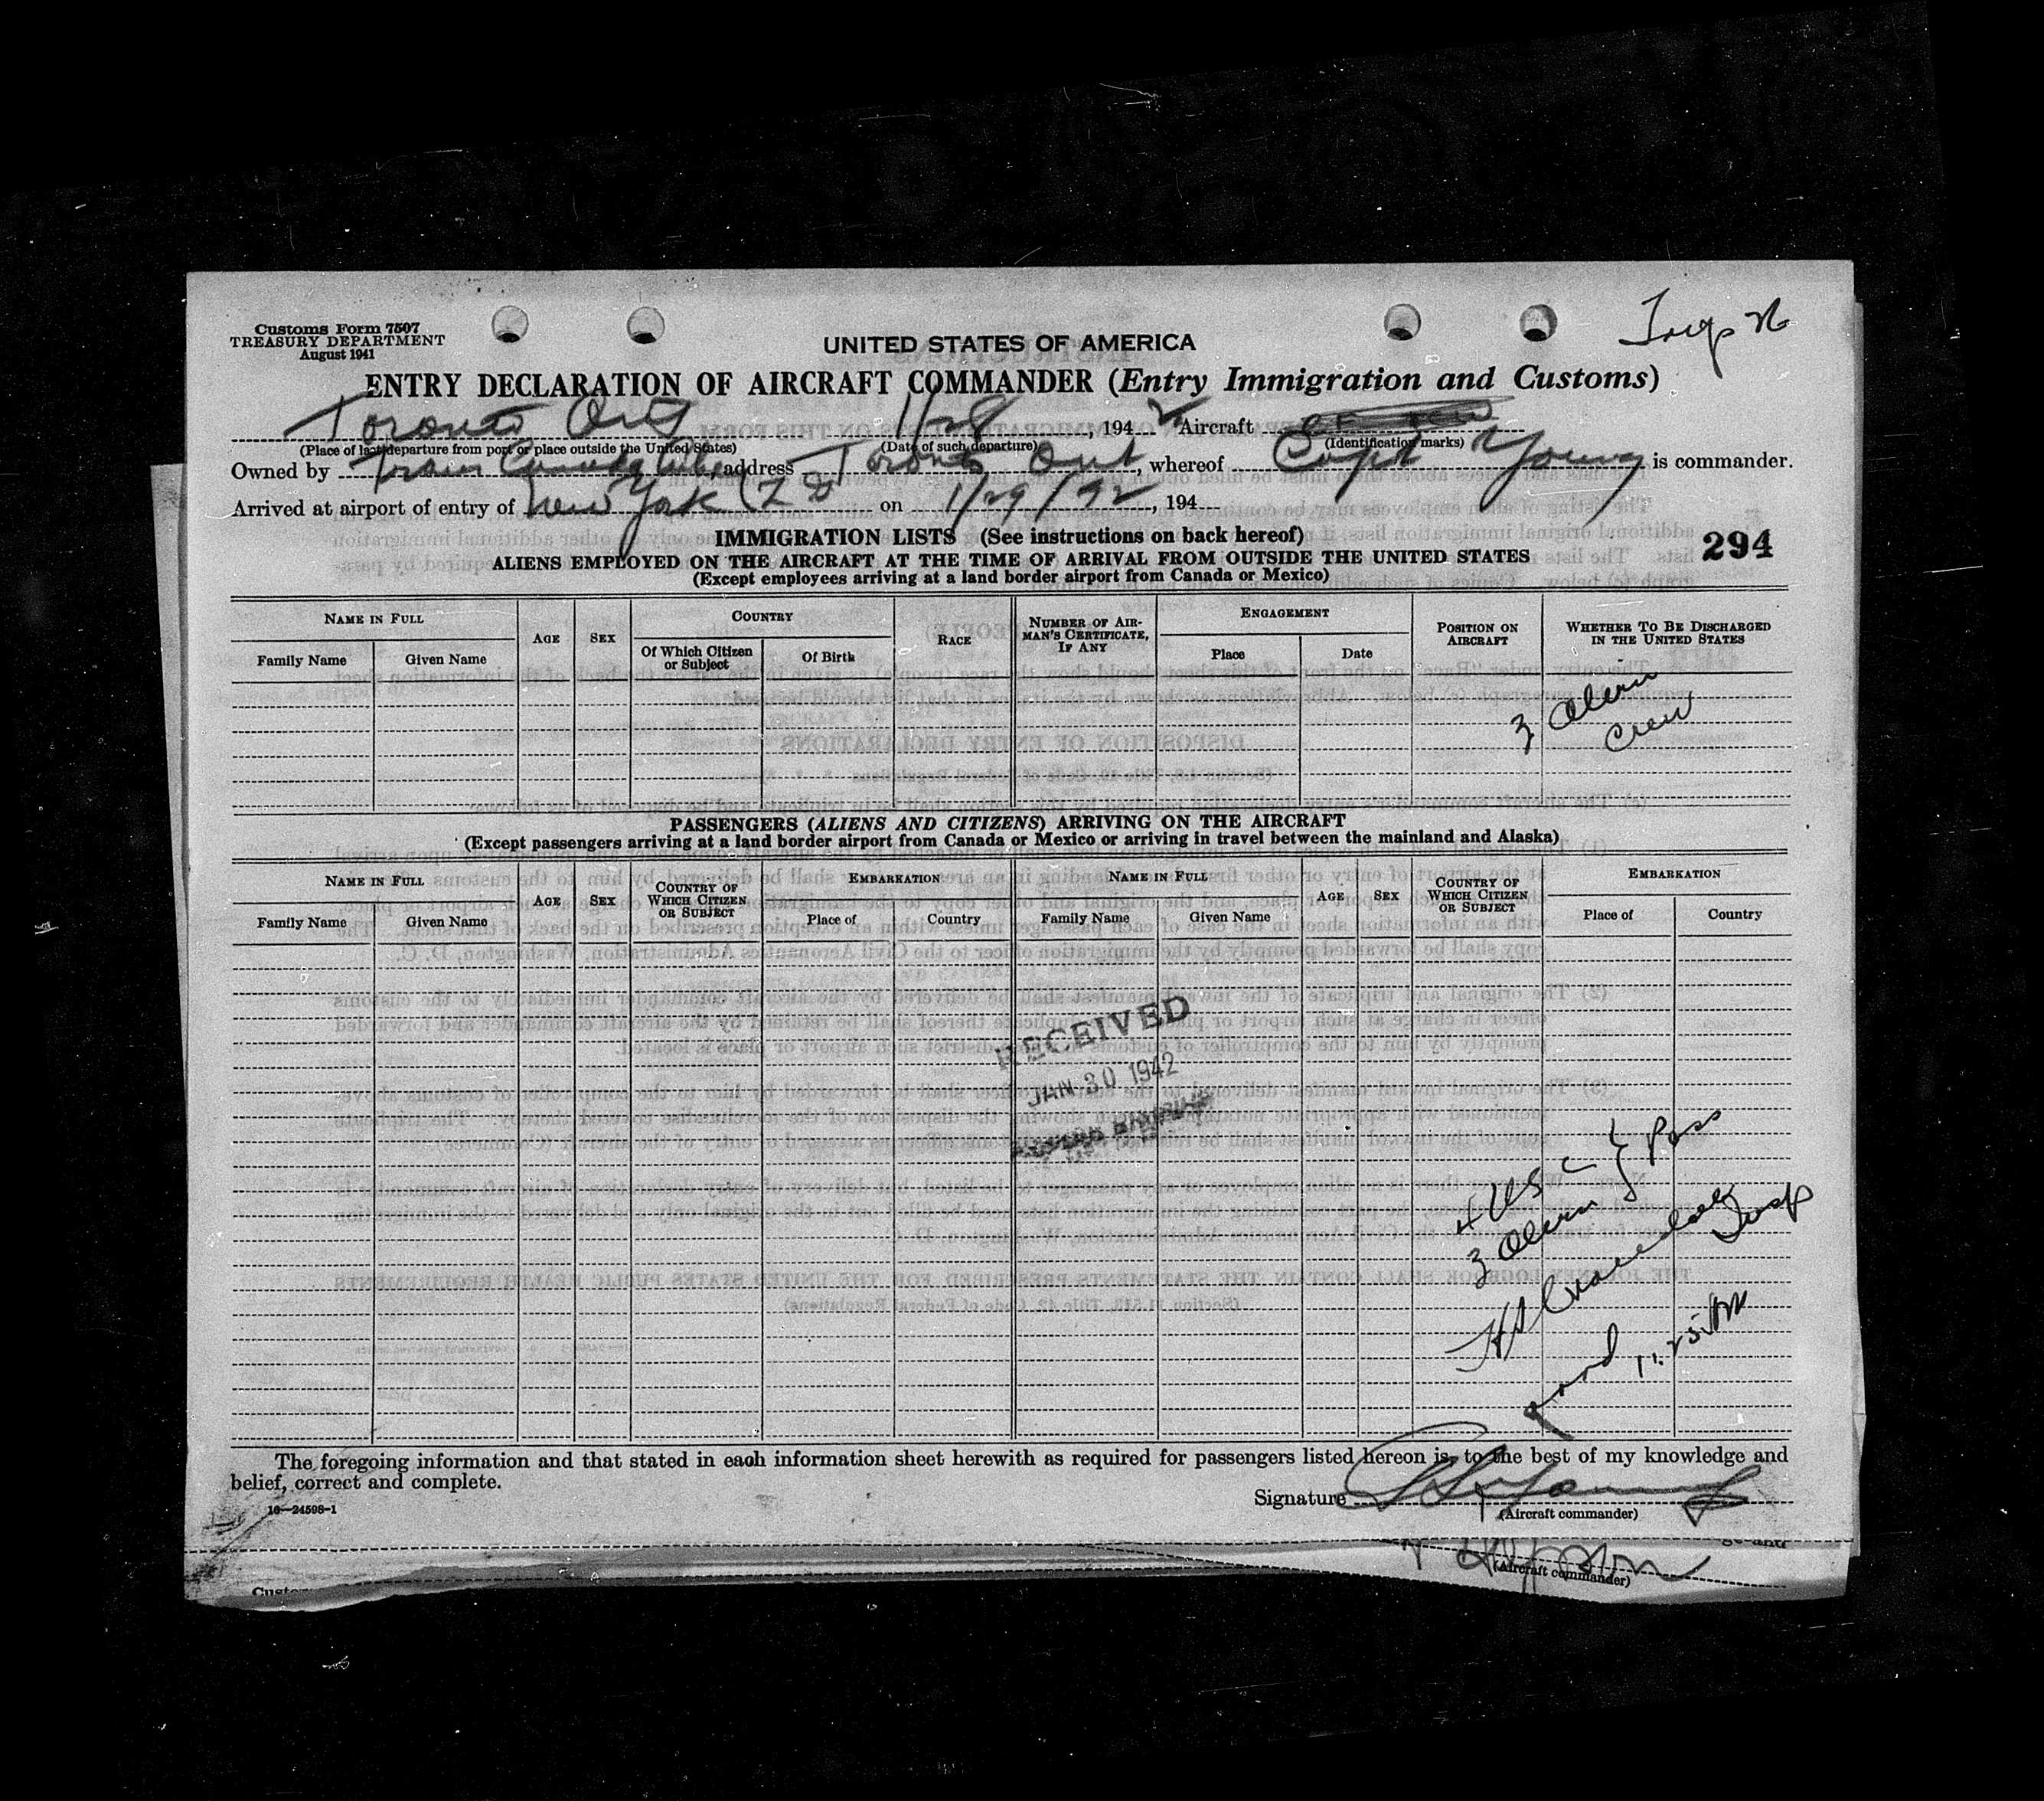 Customs Form 7507
TREASURY DEPARTMENT
August 1941
UNITED STATES OF AMERICA
ENTRY DECLARATION OF AIRCRAFT COMMANDER (Entry Immigration and Customs)
Toronto Ont 1/28, 1942 Aircraft
(Place of last departure from port or place outside the United States) (Date of such departure) (Identification marks)
Owned by Trans Canada address Toronto Ont, whereof Capt Young is commander.
Arrived at airport of entry of New York on 1/29/42, 194
294
IMMIGRATION LISTS (See instructions on back hereof)
ALIENS EMPLOYED ON THE AIRCRAFT AT THE TIME OF ARRIVAL FROM OUTSIDE THE UNITED STATES
(Except employees arriving at a land border airport from Canada or Mexico)
NAME IN FULL AGE SEX COUNTRY RACE NUMBER OF AIRMAN'S CERTIFICATE, IF ANY ENGAGEMENT POSITION ON AIRCRAFT WHETHER TO BE DISCHARGED IN THE UNITED STATES
Family Name Given Name Of Which Citizen or Subject Of Birth Place Date
3 Alien
Crew
PASSENGERS (ALIENS AND CITIZENS) ARRIVING ON THE AIRCRAFT
(Except passengers arriving at a land border airport from Canada or Mexico or arriving in travel between the mainland and Alaska)
NAME IN FULL AGE SEX COUNTRY OF WHICH CITIZEN OR SUBJECT EMBARKATION NAME IN FULL AGE SEX COUNTRY OF WHICH CITIZEN OR SUBJECT EMBARKATION
Family Name Given Name Place of Country Family Name Given Name Place of Country
RECEIVED
JAN 30 1942
4 US C } Pass
3 Alien
Insp
11:25 AM
The foregoing information and that stated in each information sheet herewith as required for passengers listed hereon is, to the best of my knowledge and
belief, correct and complete.
Signature Young
16—24598-1
(Aircraft commander)
ge and
(Aircraft commander)
Custo